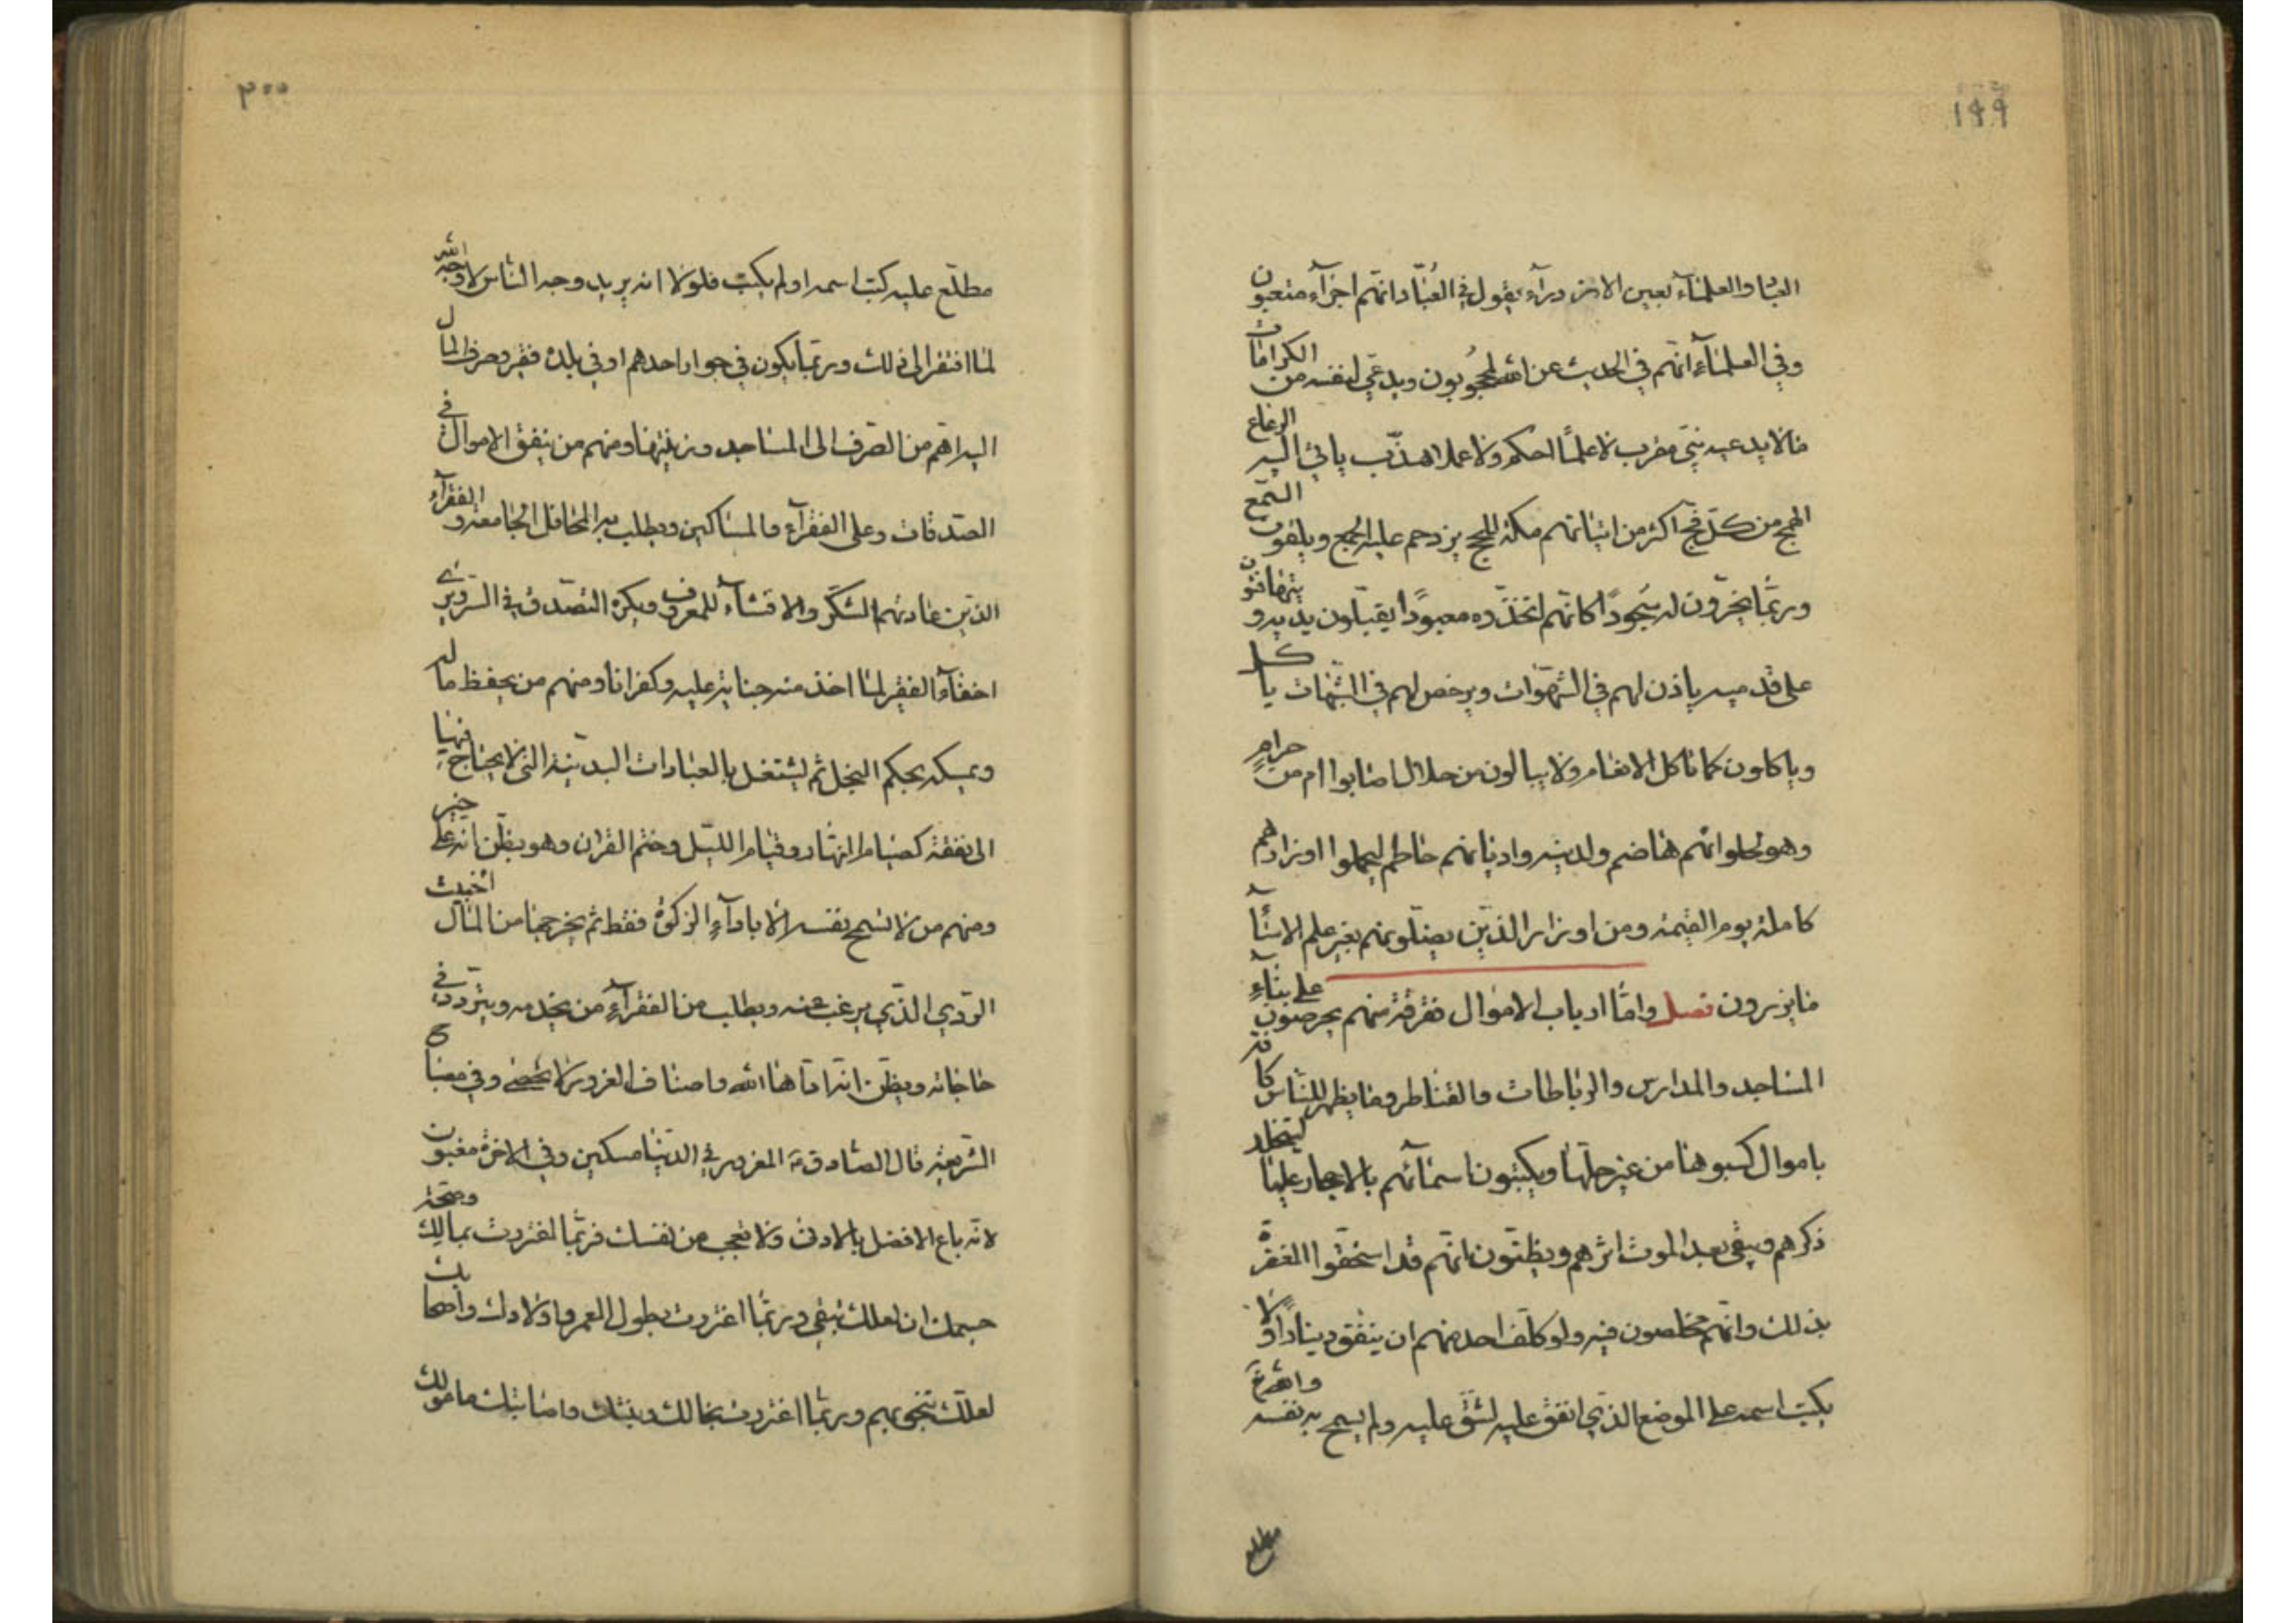 ١٩٩
العباد والعلماء بعين الازدراء يقول في العُبّاد انهم اجراء متعبون
وفي العلماء انهم في الحديث عن الله لمحجُوبون ويدعي لنفسه من الكرامات
ما لا يدعيه نبي مقرب لا علماً احكم ولا عملا هذّب ياتي اليه الرعاع
الهمج من كل فج اكثر من اتيانهم مكة للحج يزدحم عليه الجمع ويلقون السمع
وربما يخرّون له سُجوداً كانهم اتخذوه معبوداً يقبلون يديه و يتهافتون
على قدميه ياذن لهم في الشهوات ويرخص لهم في الشبهات ياكل
وياكلون كما تاكل الانعام ولا يبالون من حلال اصابوا ام من حرام
وهو لحلوائهم هاضم ولدينه واديانهم حاطم ليحملوا اوزارهم
كاملة يوم القيمة ومن اوزار الذين يضلونهم بغير علم الا ساء
ما يزرون فصل واما ارباب الاموال ففرقة منهم يحرصون على بناء
المساجد والمدارس والرباطات والقناطر وما يظهر للناس كافة
باموال كسبوها من غير حلها ويكتبون اسمائهم بالاحجار عليها ليتخلد
ذكرهم ويبقى بعد الموت اثرهم ويظنون انهم قد استحقوا المغفرة
بذلك وانهم مخلصون فيه ولو كلف احد منهم ان ينفق ديناراً ولا
يكتب اسمه على الموضع الذي انفق عليه لشق عليه ولم يسمح به نفسه والله
٢٠٠
مطلع عليه كتب اسمه او لم يكتب فلولا انه يريد وجه الناس لا وجه الله
لما افتقر الى ذلك وربما يكون في جوار احدهم او في بلده فقير وصرف المال
اليه اهم من الصرف الى المساجد وزينتها ومنهم من ينفق الاموال في
الصدقات وعلى الفقراء والمساكين ويطلب به المحافل الجامعة و الفقراء
الذين عادتهم الشكر والافشاء للمعروف ويكره التصدق في السر ويرى
اخفاء الفقير لما اخذ منه جناية عليه وكفرانا ومنهم من يحفظ ماله
ويمسكه بحكم البخل ثم ليشتغل بالعبادات البدنية التي لا يحتاج فيها
الى نفقة كصيام النهار وقيام الليل وختم القران وهو يظن انه على خير
ومنهم من لا تسمح نفسه الا باداء الزكوة فقط ثم يخرجها من المال الخبيث
الردي الذي يرغب عنه ويطلب من الفقراء من يخدمه ويتردد في
حاجاته ويظن انه اداها لله واصناف الغرور لا تحصى وفي مصباح
الشريعة قال الصادق ع المغرور في الدنيا مسكين وفي الاخرة مغبون
لانه باع الافضل بالادنى ولا تعجب من نفسك فربما اغتررت بمالك وصحة
جسمك ان لعلك تبقى وربما اغتررت بطول العمر واولادك واصحابك
لعلك تنجو بهم وربما اغتررت بجمالك ومنيتك واصابتك مامولك